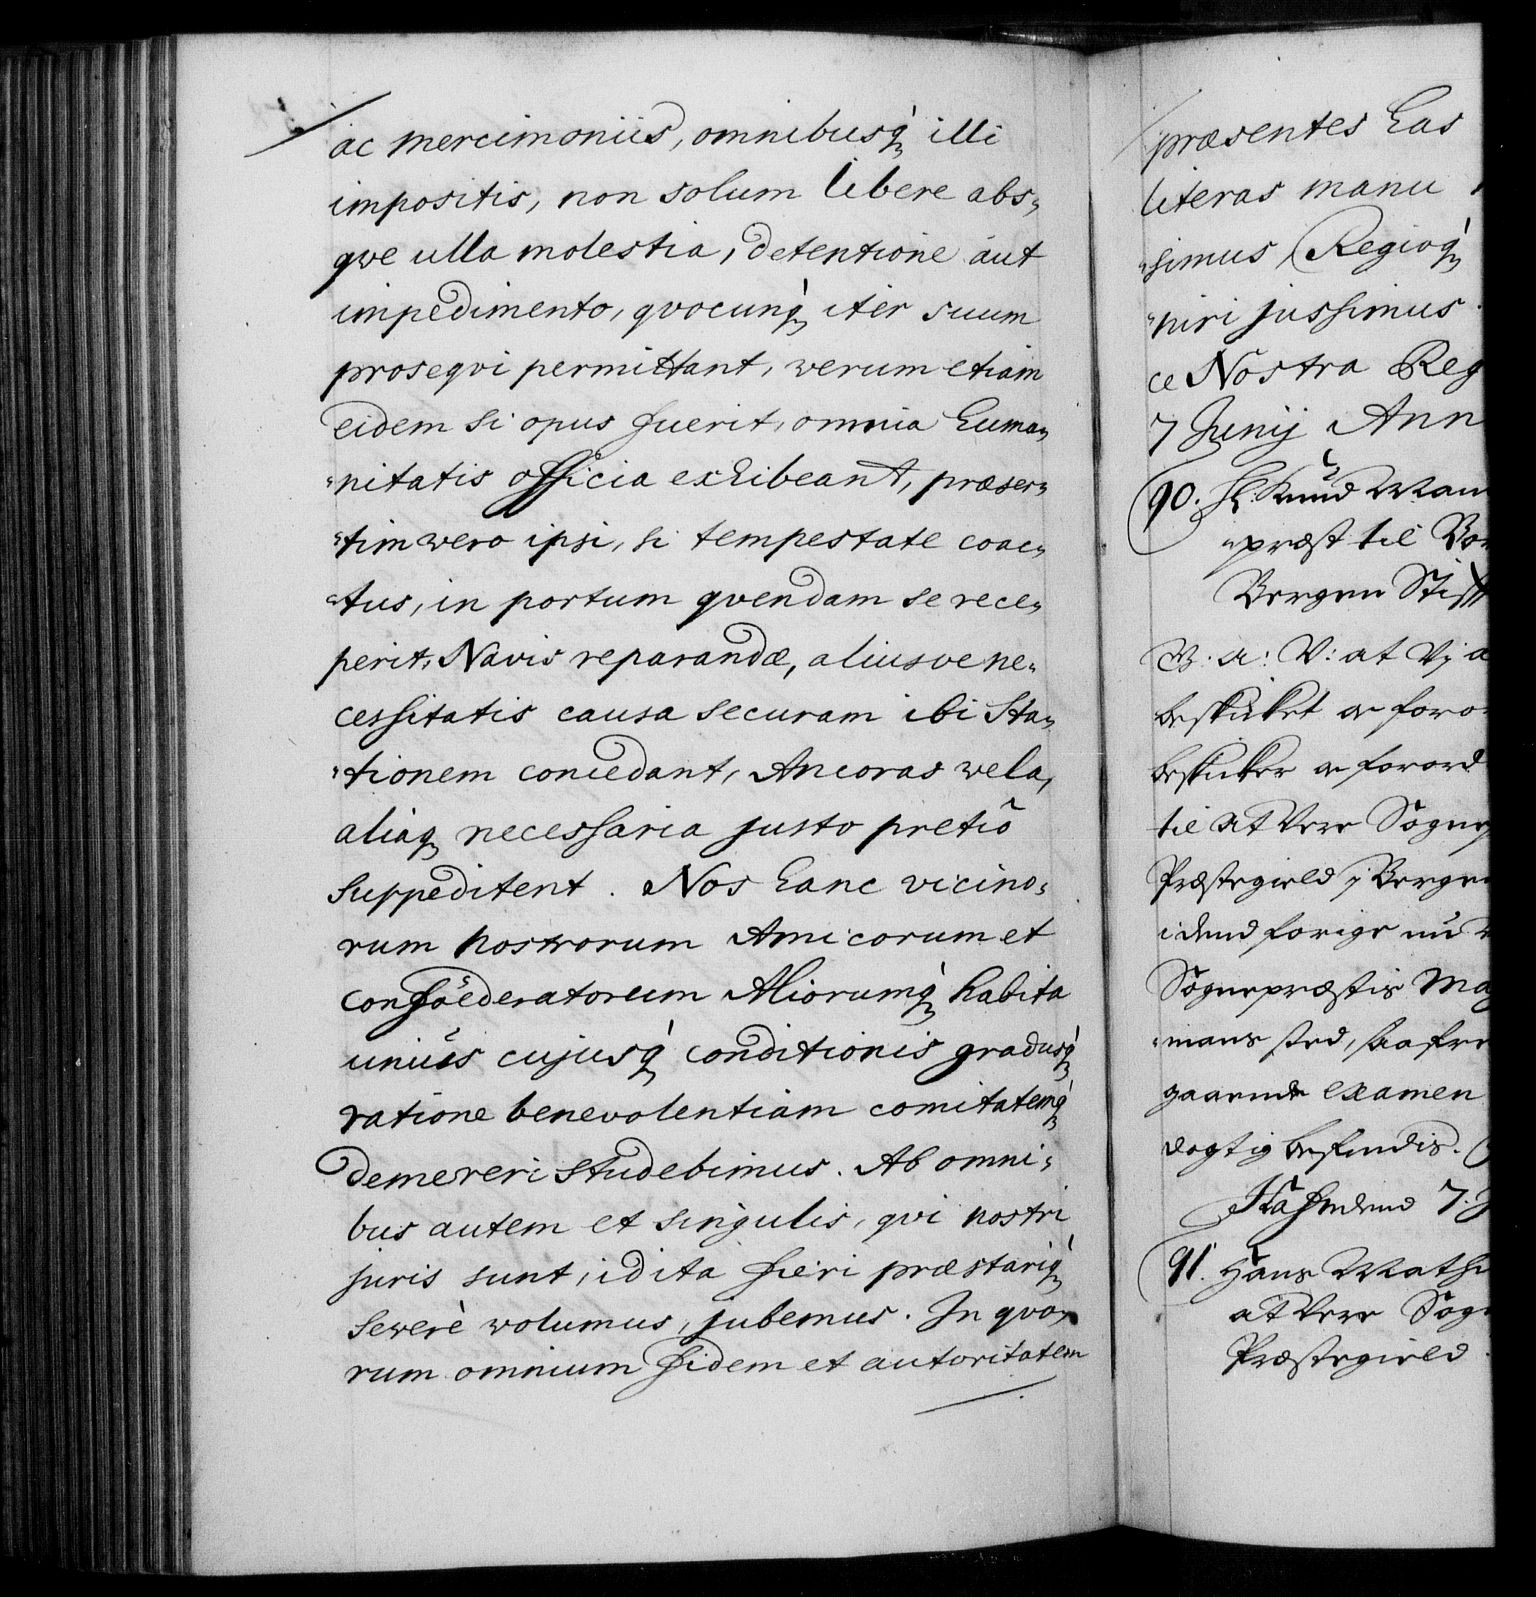 ac mercimoniis, omnibusq́ illi
impositis, non solum libere abs„
qve ulla molestia, detentione aut
impedimento, qvocunq́ iter suum
proseqvi permittant, verum etiam
eidem si opus fuerit, omnia huma„
„nitatis officia exhibeant, præser„
„tim vero ipsi, si tempestate coac„
„tus, in portum qvendam se rece„
perit, Navis reparandæ, aliusve ne„
cessitatis causa securam ibi sta„
„tionem concedant, Ancoras vela,
aliaq necessaria justo pretiô
suppeditent. Nos hanc vicino„
rum nostrorum Amicorum et
conföederatorum Aliorumq́ habita
uniús cujusq́ conditionis gradusq́
ratione benevolentiam comitatemq́
demereri studebimus. Ab omni„
bus autem et singulis, qvi nostri
juris sunt, id ita fieri præstariq́
severè volumus, jubemus. In qvo„
rum omnium fidem et autoritatem
præsentes has
literas manu
„simus, Regioq́
„niri jussimus.
ce Nostra Reg
7 Junij Ann
90. Hr. Knud Wam
„præst til Vor
Bergen Stift
G. A: V: at Vj a
beskiket og foror
beskiker og forord
til at være Sogne
Præstegield j Bergen
idend forige nu
Sognepræstis Mag
„mans sted, saa fre
gaaende examen
dogtig befindis.
Hafniens 7. J
91. Hans Mathi
at være Sogn
Præstegield